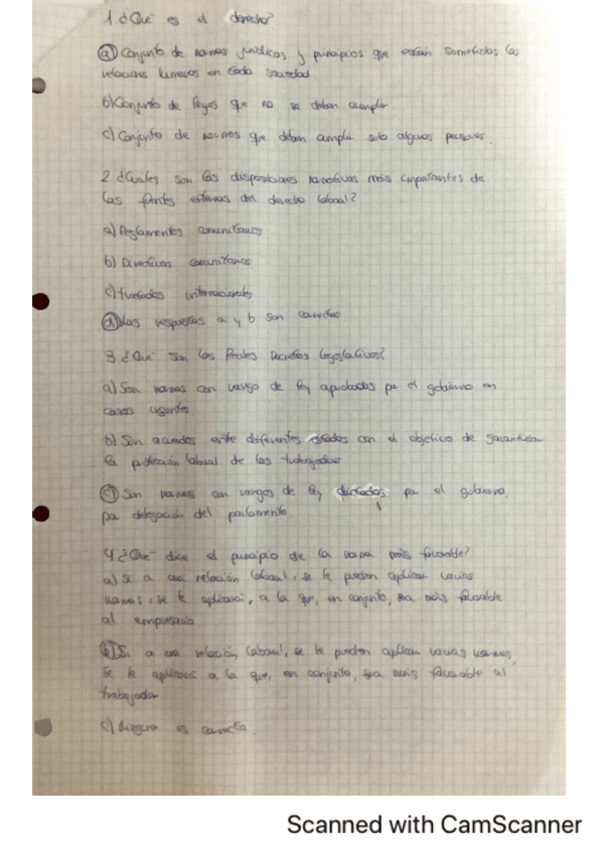 1 ¿Qué es el derecho?
a) Conjunto de normas jurídicas y principios que están sometidas las
relaciones humanas en toda sociedad
b) Conjunto de leyes que no se deben cumplir
c) Conjunto de normas que deben cumplir solo algunas personas.
2 ¿Cuáles son las disposiciones normativas más importantes de
las fuentes externas del derecho laboral?
a) Reglamentos comunitarios
b) Directivas comunitarias
c) tratados internacionales
d) las respuestas a y b son correctas
3 ¿Qué son los Reales Decretos legislativos?
a) Son normas con rango de ley aprobadas por el gobierno en
casos urgentes.
b) Son acuerdos entre diferentes estados con el objetivo de garantizar
la protección laboral de los trabajadores
c) Son normas con rangos de ley dictadas por el gobierno,
por delegación del parlamento
4 ¿Qué dice el principio de la norma más favorable?
a) Si a una relación laboral, se le pueden aplicar varias
normas, se le aplicará, a la que, en conjunto, sea más favorable
al empresario
b) Si a una relación laboral, se le pueden aplicar varias normas,
se le aplicará a la que, en conjunto, sea más favorable al
trabajador
c) Ninguna es correcta.
Scanned with CamScanner